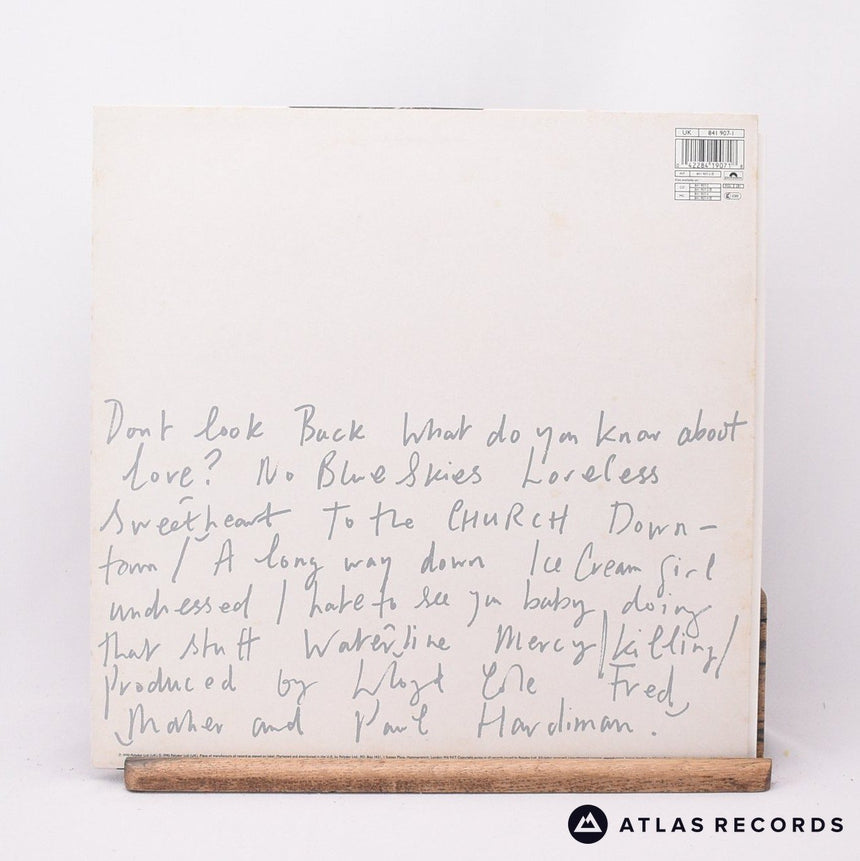 UK 841 907-1
42284 19071
Dont look Back What do you know about
love? No Blue Skies Loveless
Sweetheart To the CHURCH Down-
town / A long way down Ice Cream girl
undressed I hate to see you baby doing
that stuff Waterline Mercy/killing/
Produced by Lloyd Cole Fred
Maher and Paul Hardiman.
ATLAS RECORDS